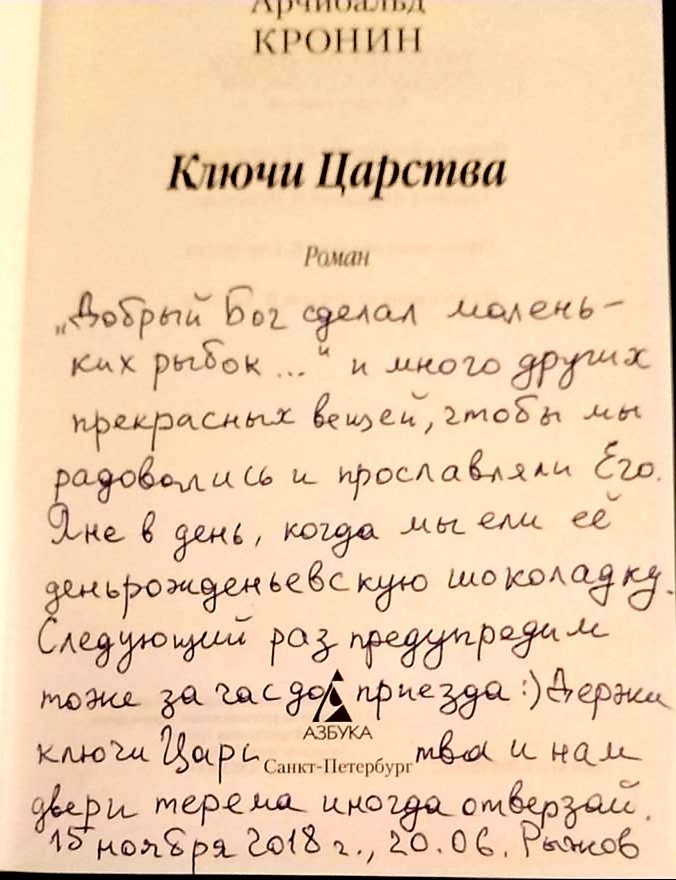 Арчибальд
КРОНИН
Ключи Царства
Роман
„Добрый Бог сделал малень-
ких рыбок..." и много других
прекрасных вещей, чтобы мы
радовались и прославляли Его.
Яне в день, когда мы ели её
деньрожденьевскую шоколадку.
Следующий раз предупредим
тоже за час до приезда :) Держи
АЗБУКА
ключи Царства и нам
Санкт-Петербург
двери терема иногда отверзай.
15 ноября 2018 г., 20.06. Рыжов